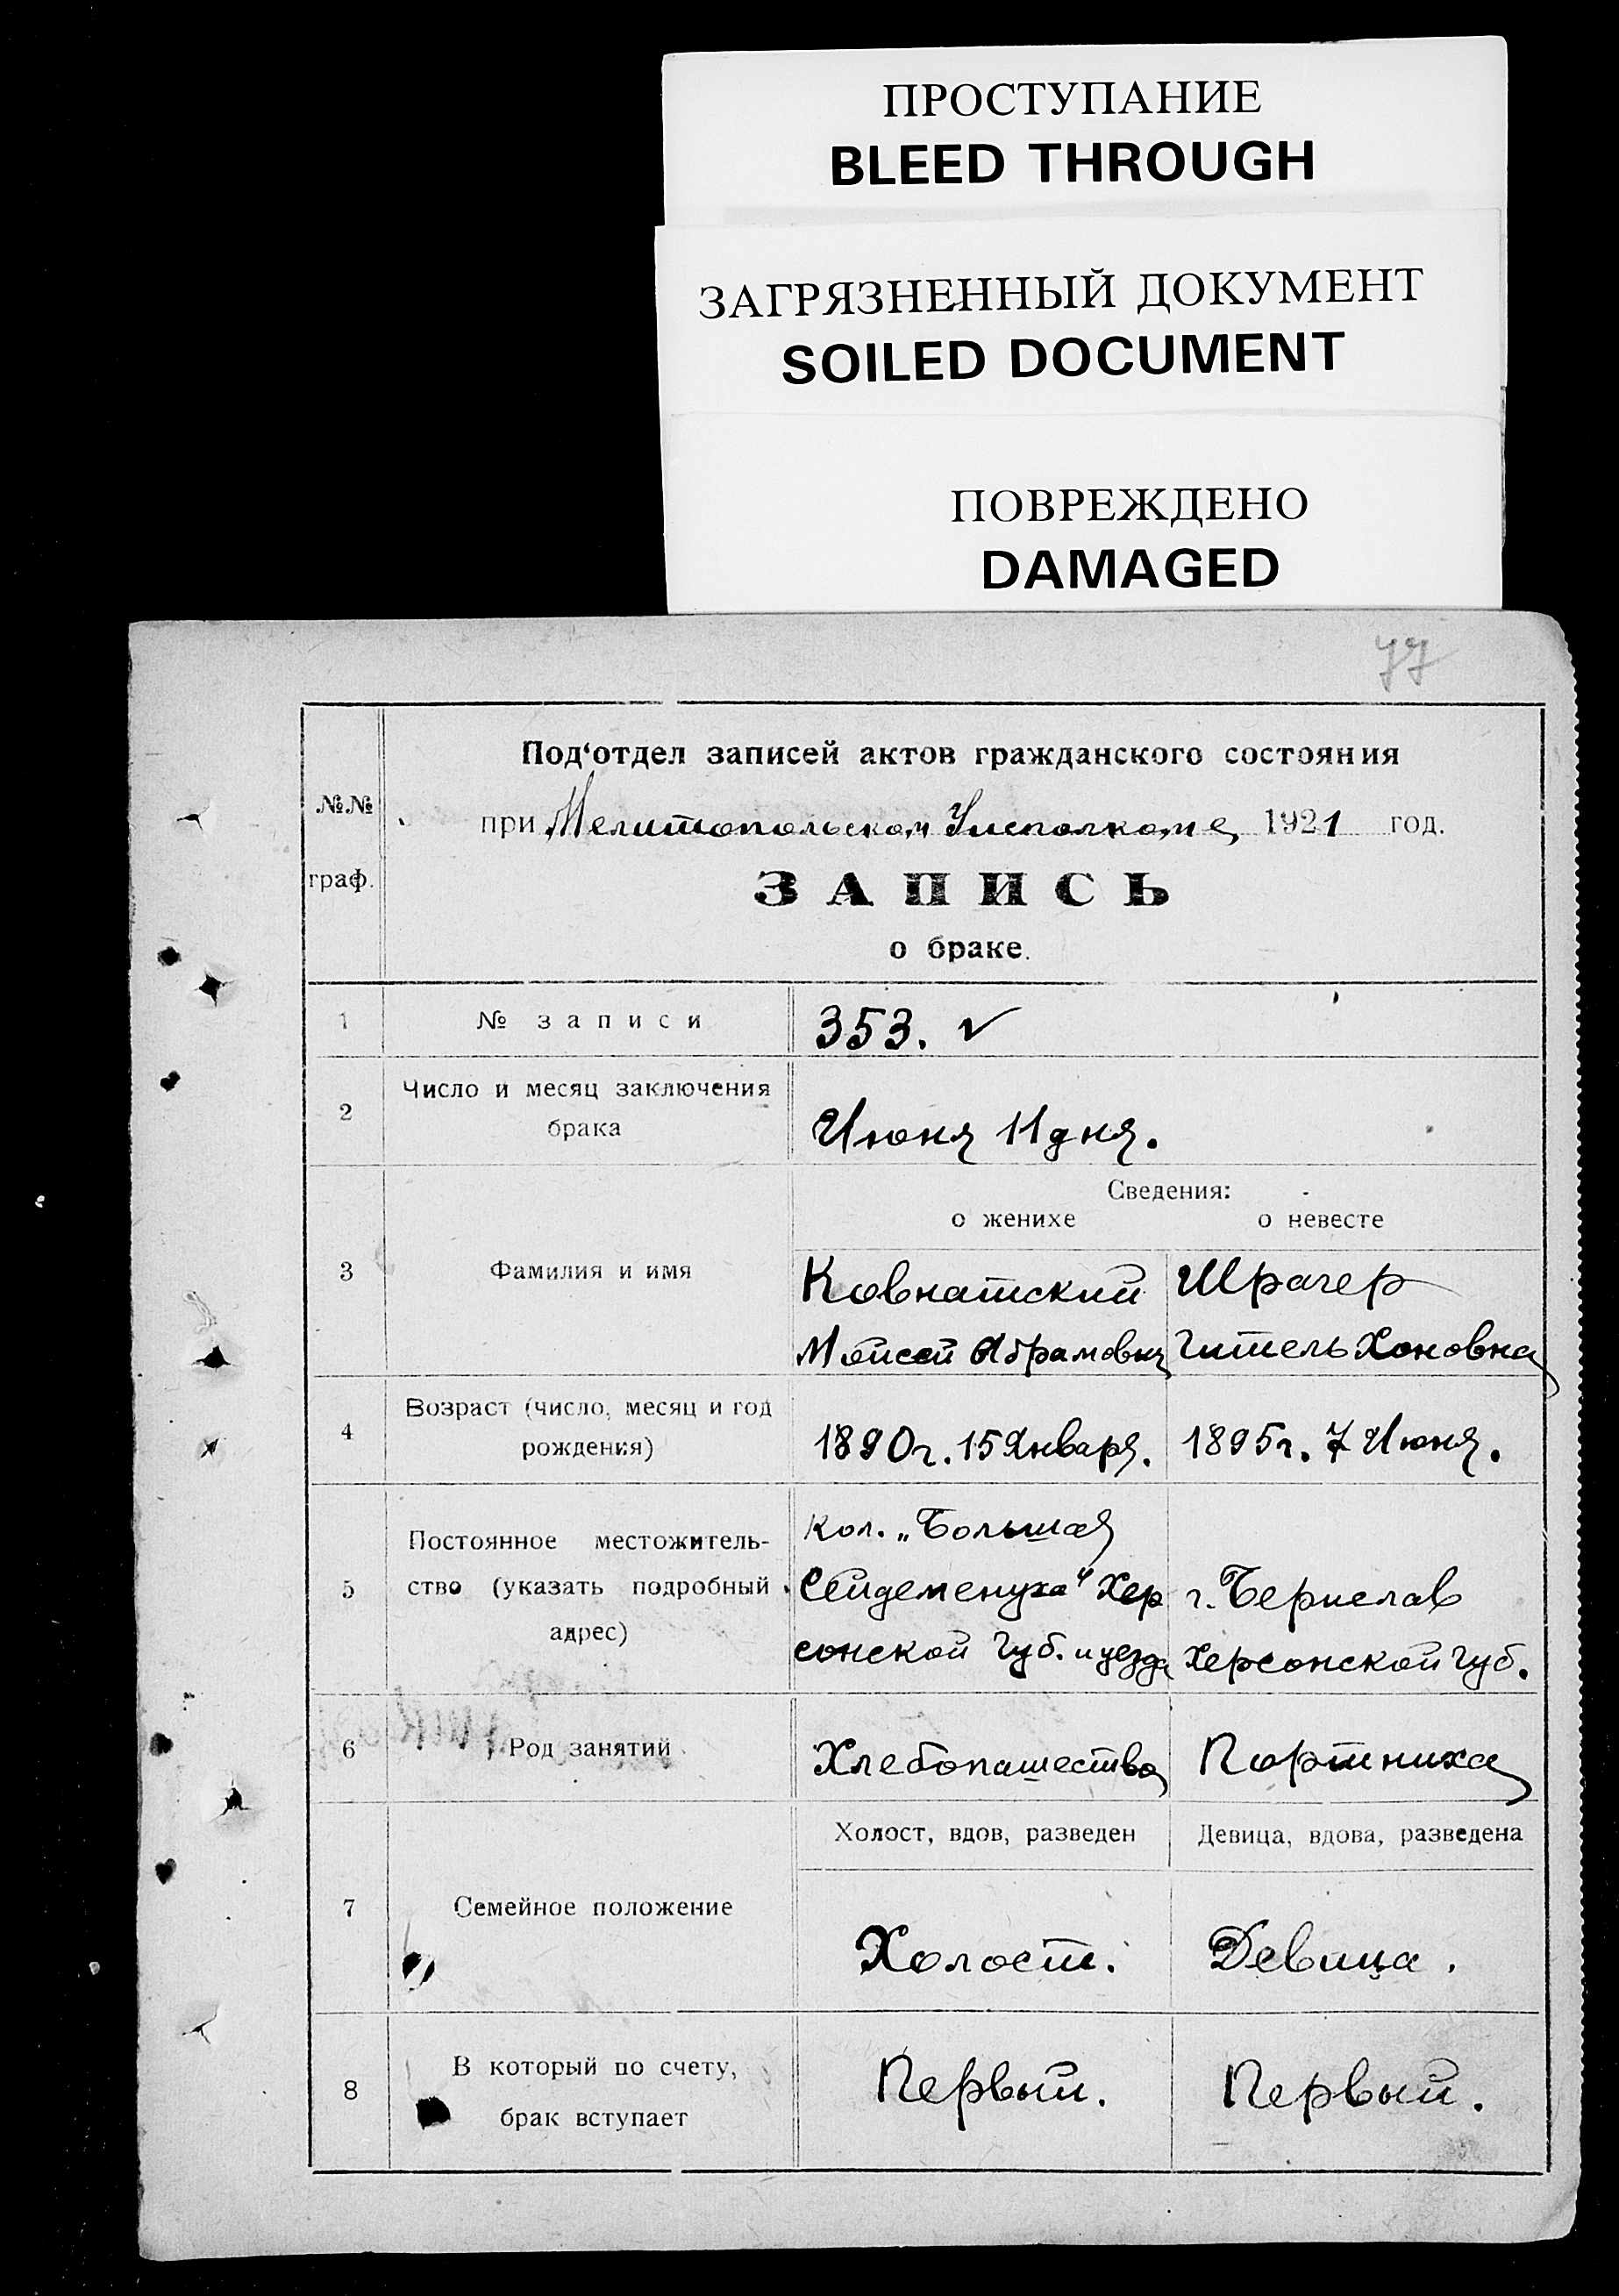 ПРОСТУПАНИЕ
BLEED THROUGH
ЗАГРЯЗНЕННЫЙ ДОКУМЕНТ
SOILED DOCUMENT
ПОВРЕЖДЕНО
DAMAGED
77
Под‘отдел записей актов гражданского состояния
№№ при Мелитопольском Уисполкоме 1921 год.
граф. ЗАПИСЬ
о браке.
1 № записи 353. ✓
Число и месяц заключения
2 брака Июня 11 дня.
Сведения:
о женихе о невесте
3 Фамилия и имя Ковнатский Шрагер
Мойсей Абрамович Гитель Хоновна
Возраст (число, месяц и год
4 рождения) 1890г. 15 Января. 1895г. 7 Июня.
кол. „Большая
Постоянное местожитель-
5 ство (указать подробный Сейдеменуха" Хер г. Берислав
адрес) сонской Губ. и уезда Херсонской Губ.
6 Род занятий Хлебопашество Портниха
Холост, вдов, разведен Девица, вдова, разведена
7 Семейное положение
Холост. Девица.
8 В который по счету, Первый. Первый.
брак вступает